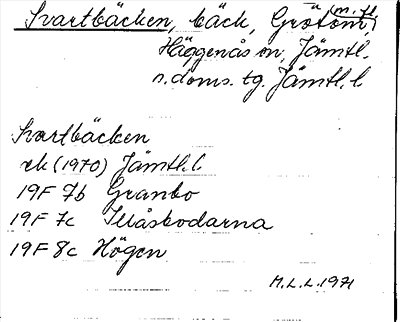 Svartbäcken, bäck, Grötom, (m. fl.)
Häggenås sn, Jämtl.
n. doms. tg. Jämtl. l.
Svartbäcken
ek (1970) Jämtl. l
19F 7b Granbo
19F 7c Illåsbodarna
19F 8c Högen
M.L.L. 1971